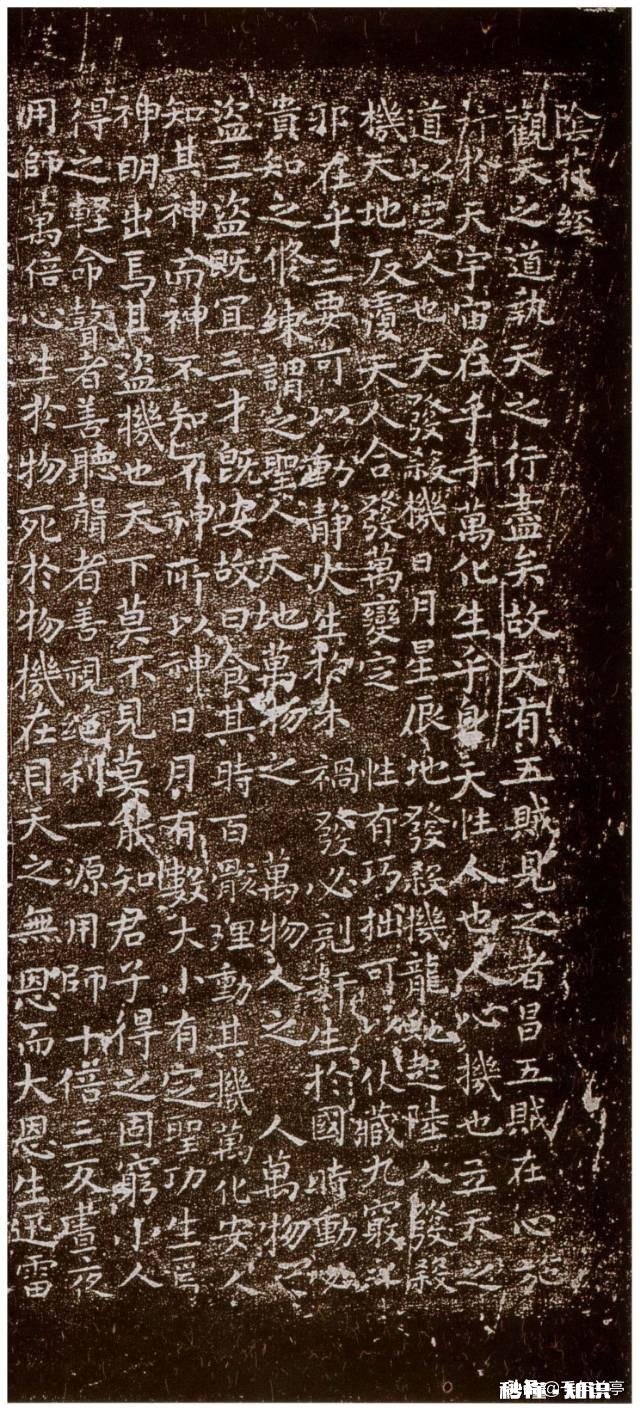 陰符經
觀天之道執天之行盡矣故天有五賊見之者昌五賊在心施
行於天宇宙在乎手萬化生乎身天性人也人心機也立天之
道以定人也天發殺機日月星辰地發殺機龍虵起陸人發殺
機天地反覆天人合發萬變定 性有巧拙可以伏藏九竅
邪在乎三要可以動静火生於木 禍發必剋姧生於國時動必
貴知之修練謂之聖人天地萬物之 萬物人之 人萬物之
盜三盜既宜三才既安故曰食其時百骸理動其機萬化安人
知其神而神不知不神所以神日月有數大小有定聖功生焉
神明出焉其盜機也天下莫不見莫能知君子得之固窮小人
得之輕命瞽者善聽聾者善視絶利一源用師十倍三反晝夜
用師萬倍心生於物死於物機在目天之無恩而大恩生迅雷
秒懂·知识